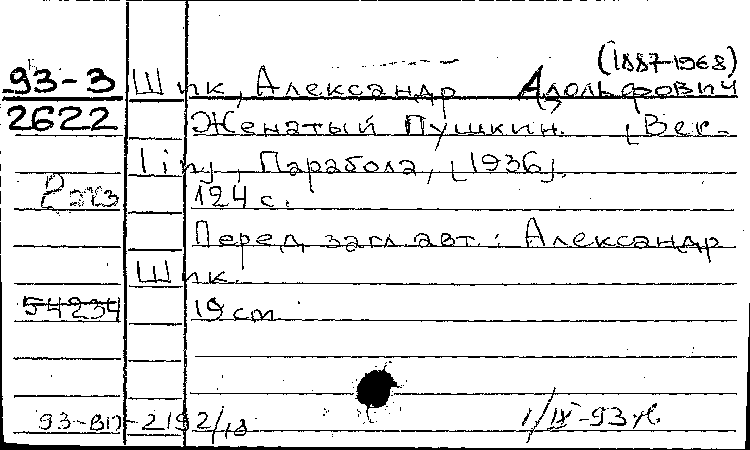 (1887-1968)
93-3 Шик, Александр Адольфович
2622 Женатый Пушкин. [Ber-
lin], Парабола, [1936].
124 с.
Перед загл. авт.: Александр
Шик.
54234 19 cm
93-ВП-2192/18 1/IX-93